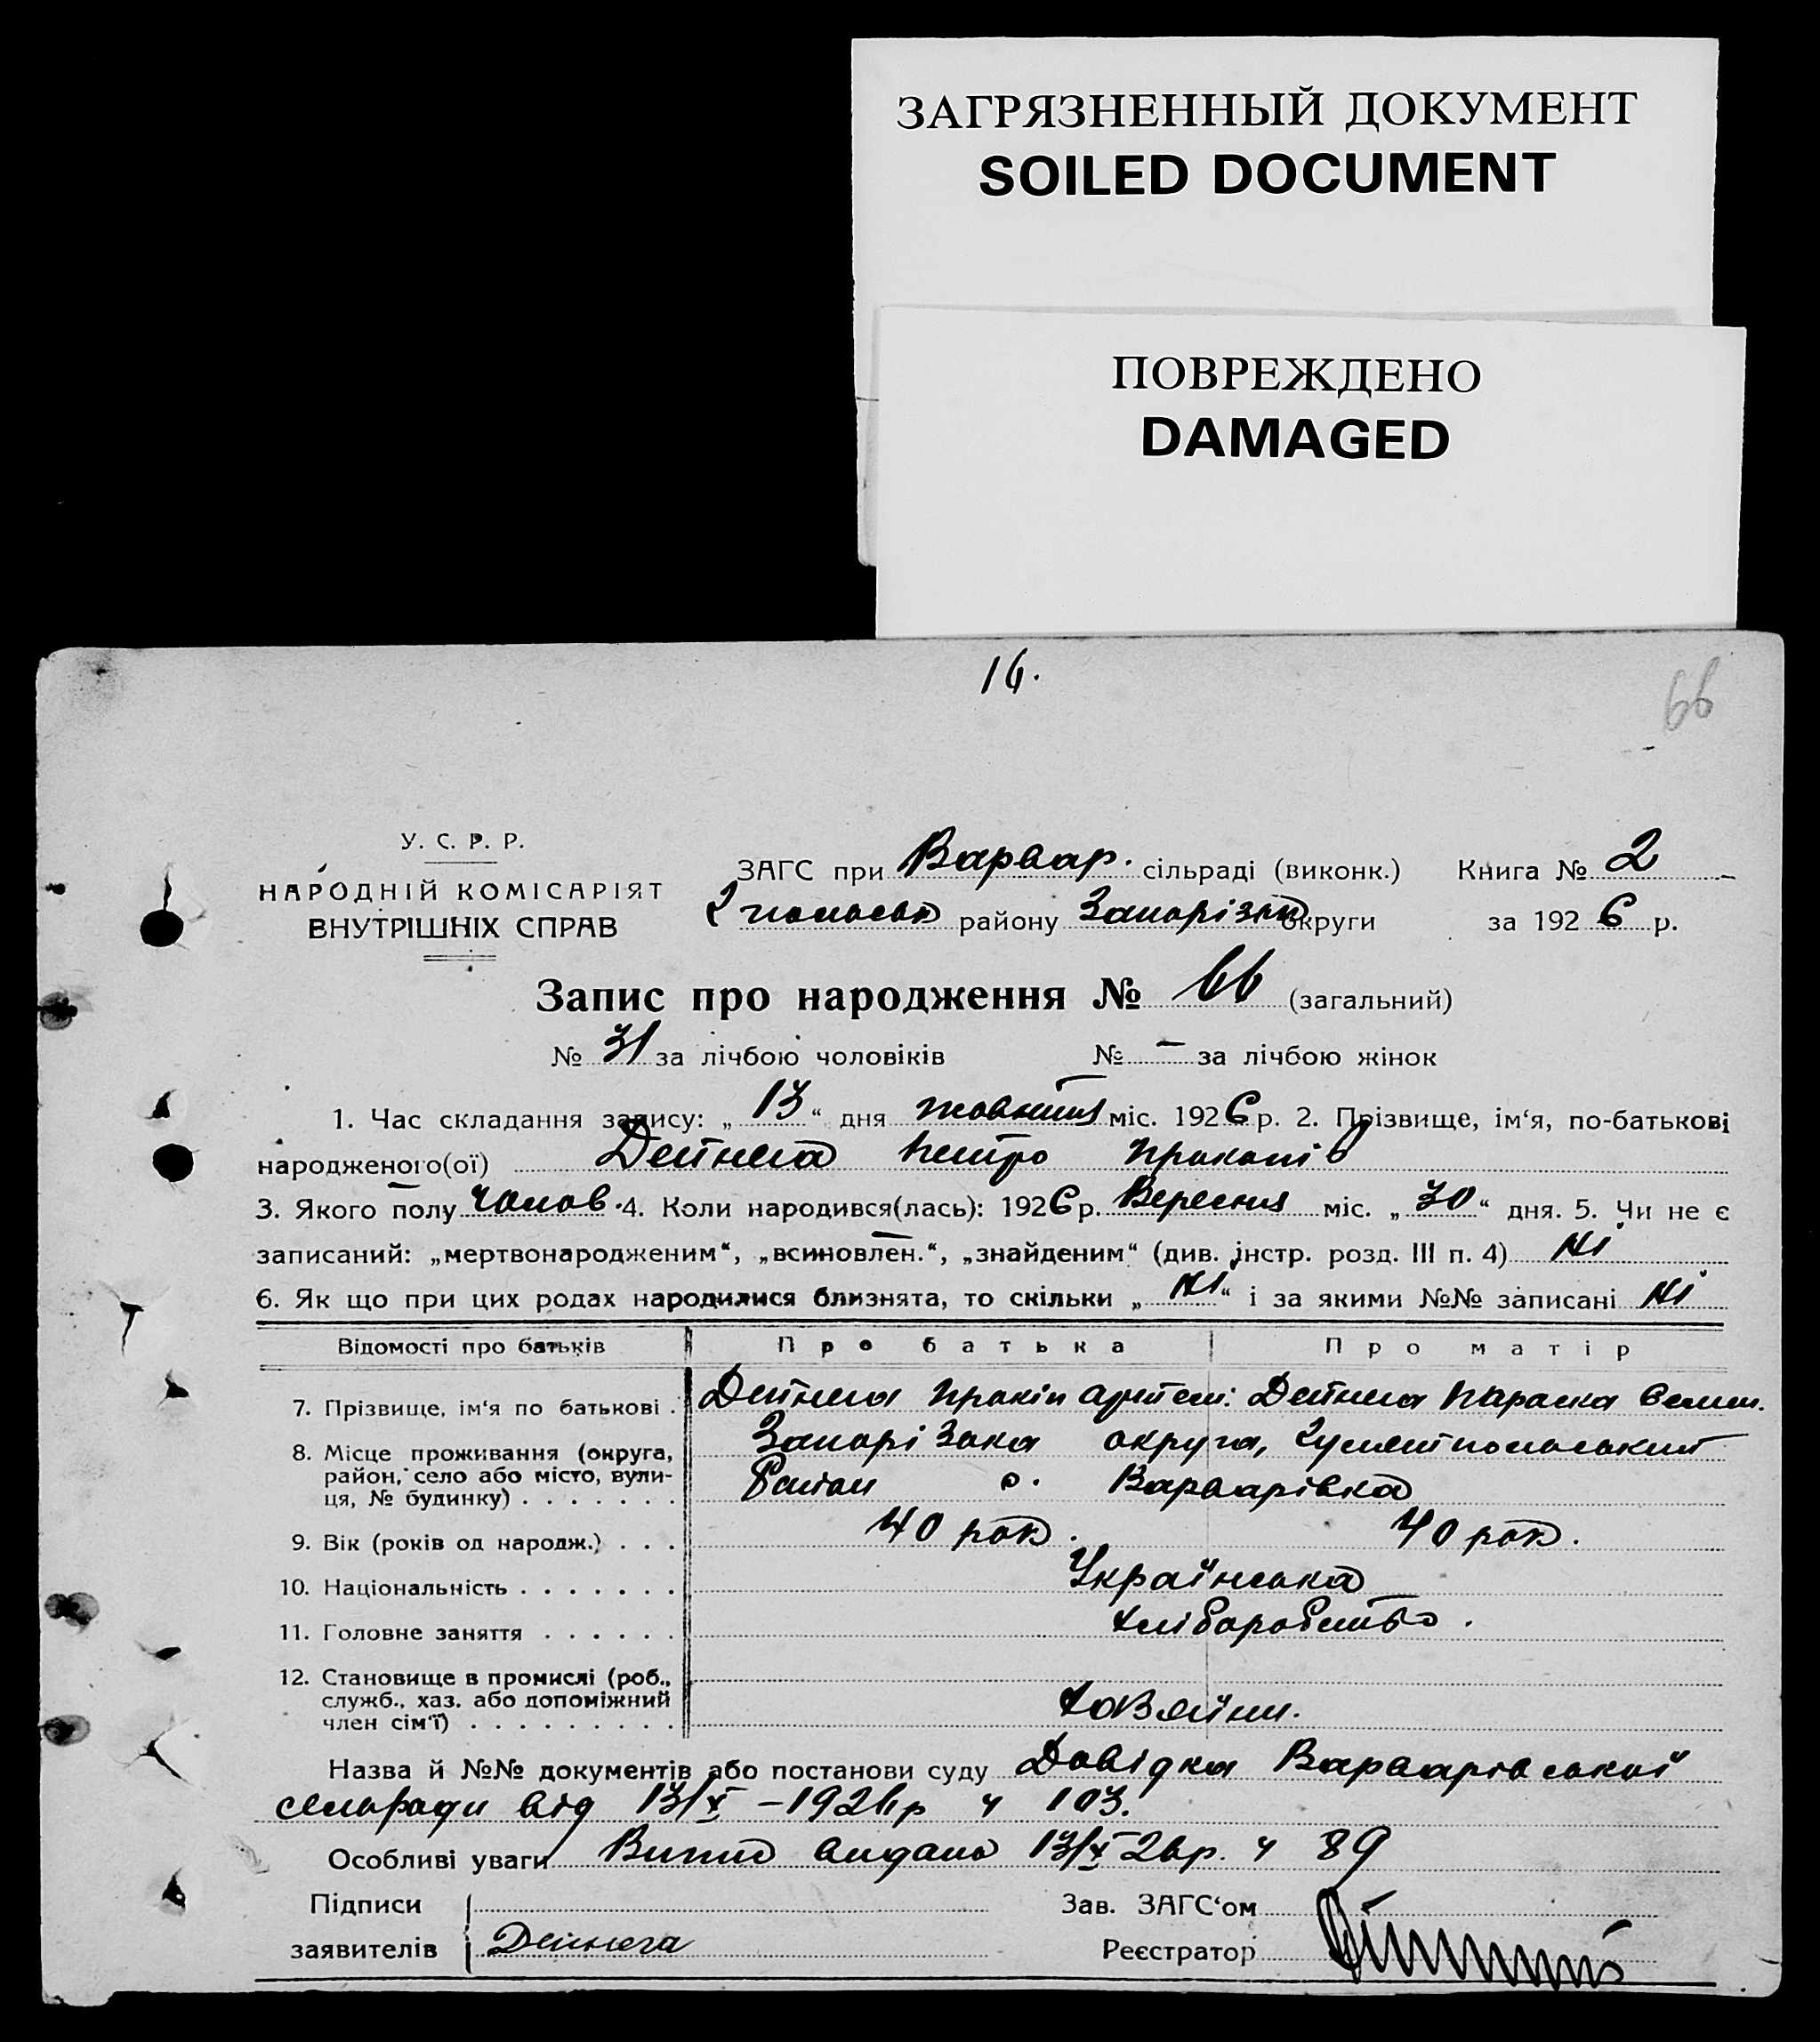 ЗАГРЯЗНЕННЫЙ ДОКУМЕНТ
SOILED DOCUMENT
ПОВРЕЖДЕНО
DAMAGED
16.
66
У. С. Р. Р.
НАРОДНІЙ КОМІСАРІЯТ
ВНУТРІШНІХ СПРАВ
ЗАГС при Варвар. сільраді (виконк.) Книга № 2
району Запорізьк округи за 1926 р.
Запис про народження № 66 (загальний)
№ 31 за лічбою чоловіків № — за лічбою жінок
1. Час складання запису: „ 13 “ дня жовтня міс. 1926 р. 2. Прізвище, ім‘я, по-батькові
народженого(ої) Дейнега Петро Прокопів
3. Якого полу чолов. 4. Коли народився(лась): 1926 р. Вересня міс. „ 30 “ дня. 5. Чи не є
записаний: „мертвонародженим“, „всиновлен.“, „знайденим“ (див. інстр. розд. III п. 4) Ні
6. Як що при цих родах народилися близнята, то скільки „ Ні “ і за якими №№ записані Ні
Відомості про батьків Про батька Про матір
7. Прізвище, ім‘я по батькові . Дейнега Прокіп Дейнега Параска
8. Місце проживання (округа, Запорізька округа, Гуляйпольський
район, село або місто, вули- Район с. Варварівка
ця, № будинку) . . . . . . .
9. Вік (років од народж.) . . . 40 рок. 40 рок.
10. Національність . . . . . . . Українська
11. Головне заняття . . . . . . Хліборобство.
12. Становище в промислі (роб.,
служб., хаз. або допоміжний
член сім‘ї) . . . . . . . . . Хазяїни.
Назва й №№ документів або постанови суду Довідка Варварівської
сельради від 13/X – 1926 р ч 103.
Особливі уваги Витяг видано 13/X 26 р. ч 89
Підписи Зав. ЗАГС‘ом
заявителів Дейнега Реєстратор